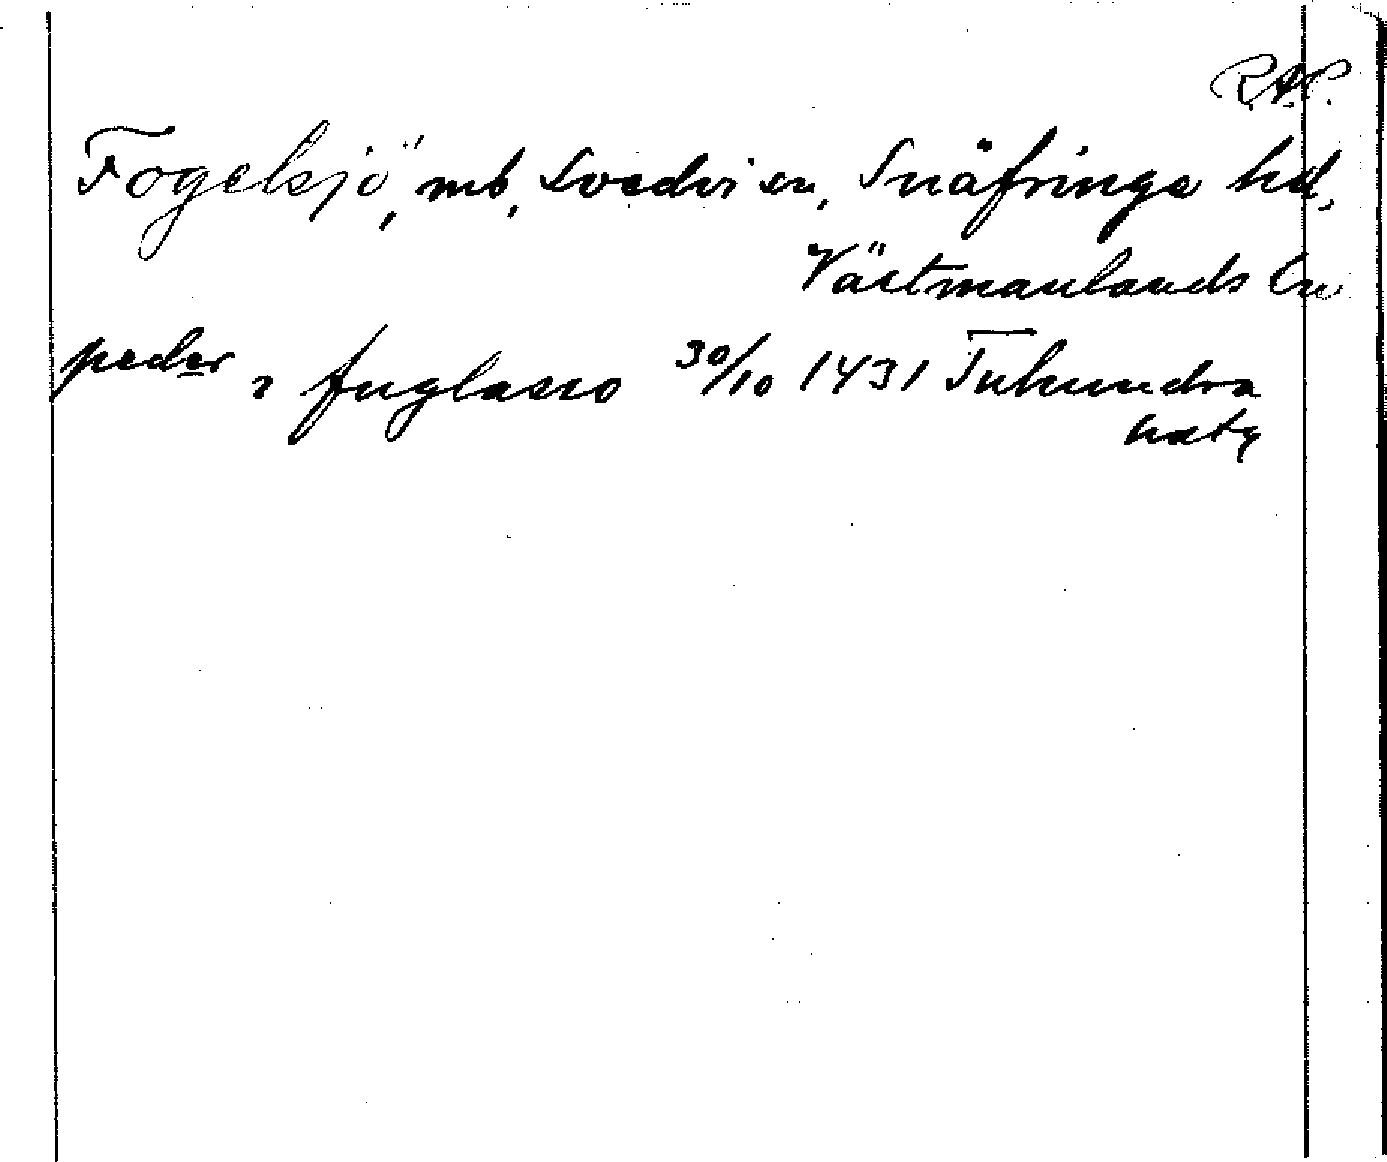 R.A.P.
Fogelsjö, mb, Svedvi sn, Snäfringe hd,
Västmanlands ln
peder i fuglasio 30/10 1431 Tuhundra
hatg